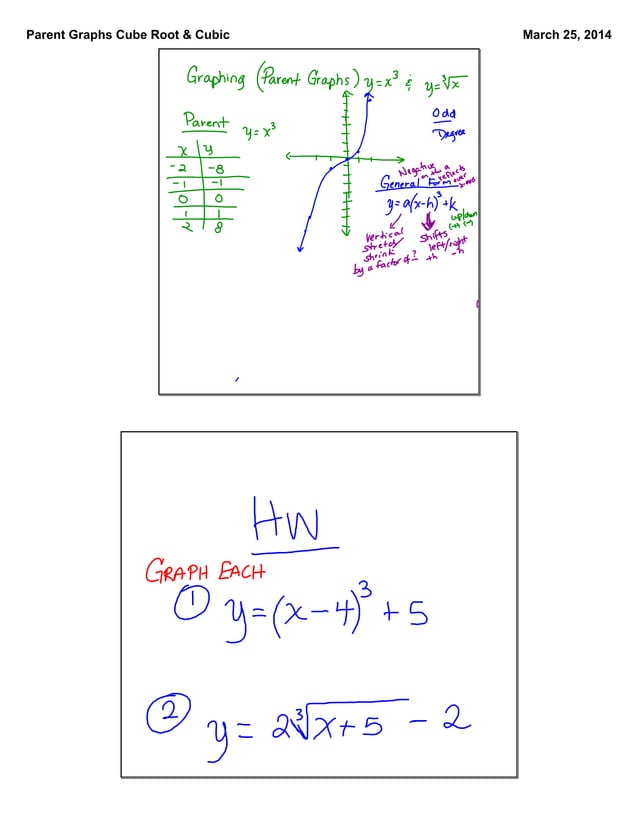 Parent Graphs Cube Root & Cubic
March 25, 2014
Graphing (Parent Graphs) y=x³ & y=∛x
Parent y=x³
Odd
Degree
x y
-2 -8
-1 -1
0 0
1 1
2 8
Negative
on the a
reflects
over
x-axis
General Form
y=a(x-h)³+k
up/down
(+) (-)
vertical
stretch/
shrink
by a factor of ?
shifts
left/right
+h -h
HW
GRAPH EACH
① y=(x-4)³+5
② y=2∛x+5 -2